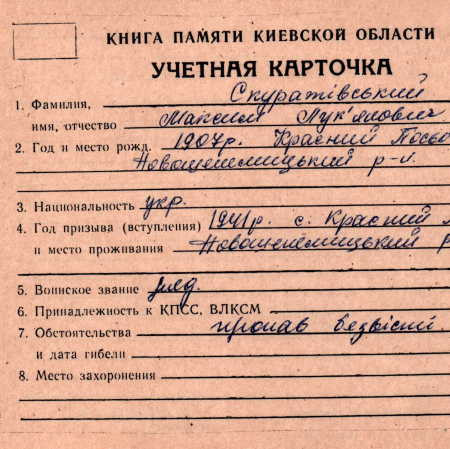 КНИГА ПАМЯТИ КИЕВСКОЙ ОБЛАСТИ
УЧЕТНАЯ КАРТОЧКА
1. Фамилия, Скуратівський
имя, отчество Максим Лук'янович
2. Год и место рожд. 1907р. Красний
р-н.
3. Национальность укр.
4. Год призыва (вступления) 1941р. с. Красний
и место проживания
5. Воинское звание ряд.
6. Принадлежность к КПСС, ВЛКСМ
7. Обстоятельства пропав безвісті
и дата гибели
8. Место захоронения